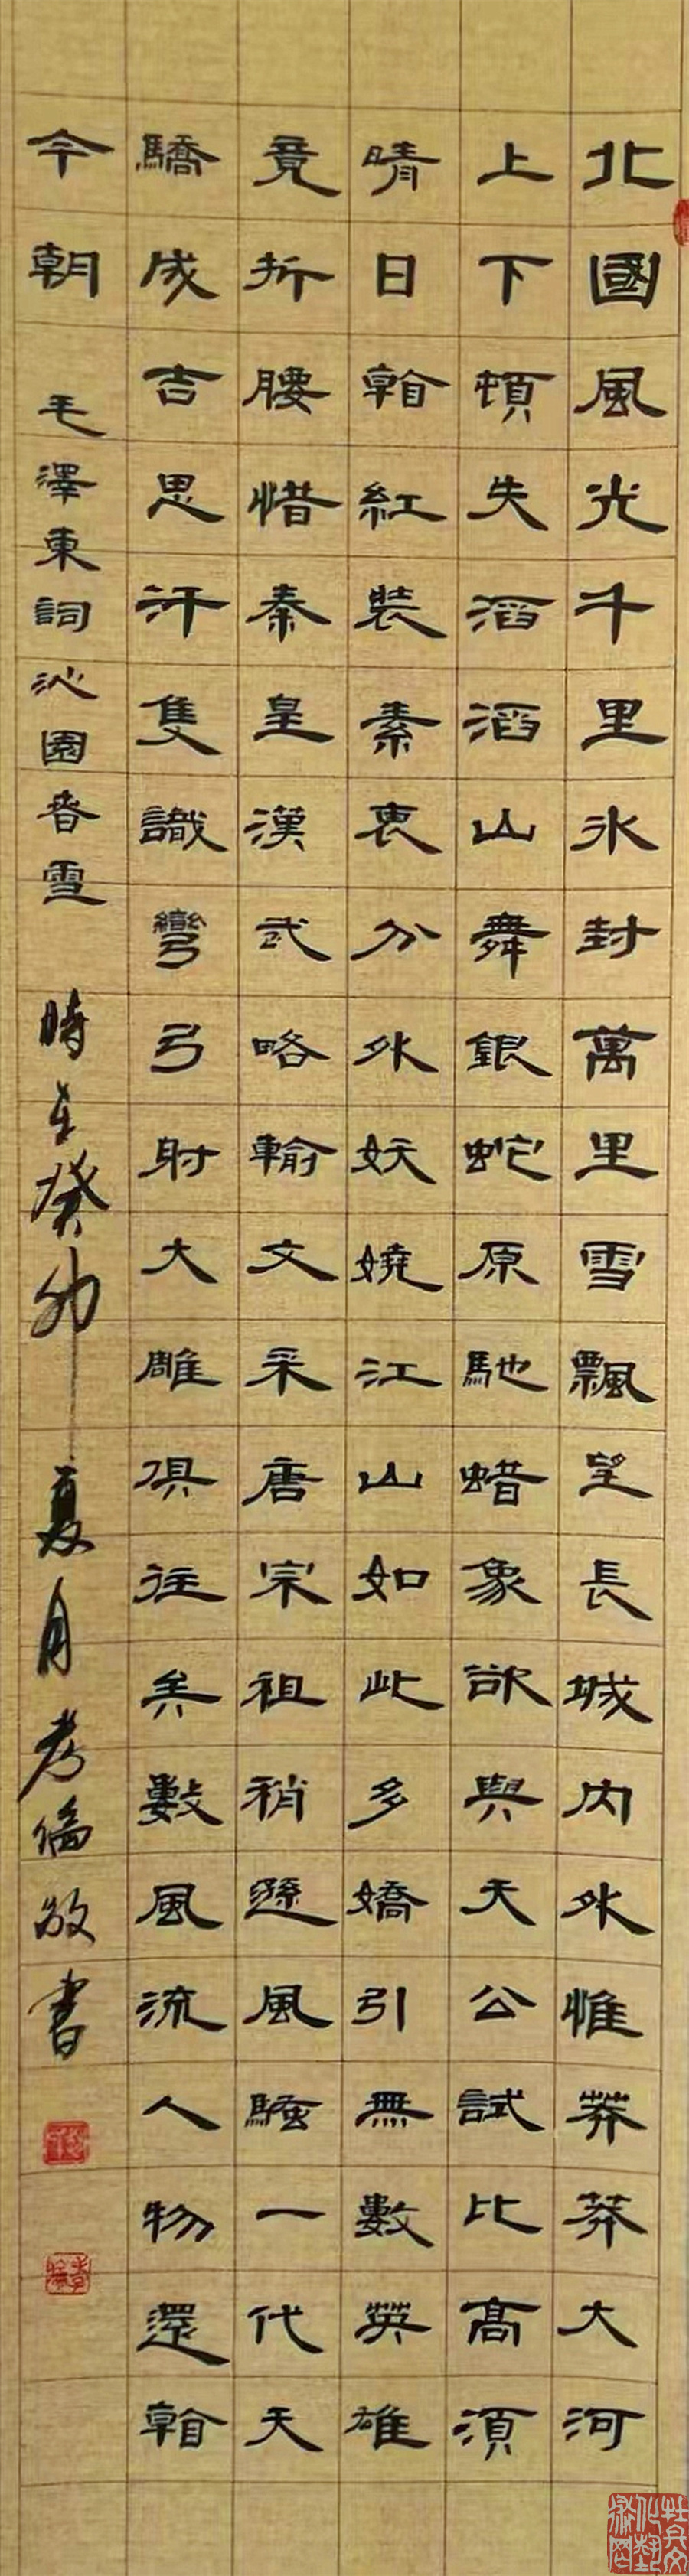 北國風光千里氷封萬里雪飄望長城內外惟莽莽大河
上下頓失滔滔山舞銀蛇原馳蜡象欲與天公試比高須
晴日看紅裝素裹分外妖嬈江山如此多嬌引無數英雄
竟折腰惜秦皇漢武略輸文采唐宗祖稍遜風騷一代天
驕成吉思汗隻識彎弓射大雕俱往矣數風流人物還看
今朝 毛澤東詞沁園春雪 時在癸卯夏月孝倫敬書